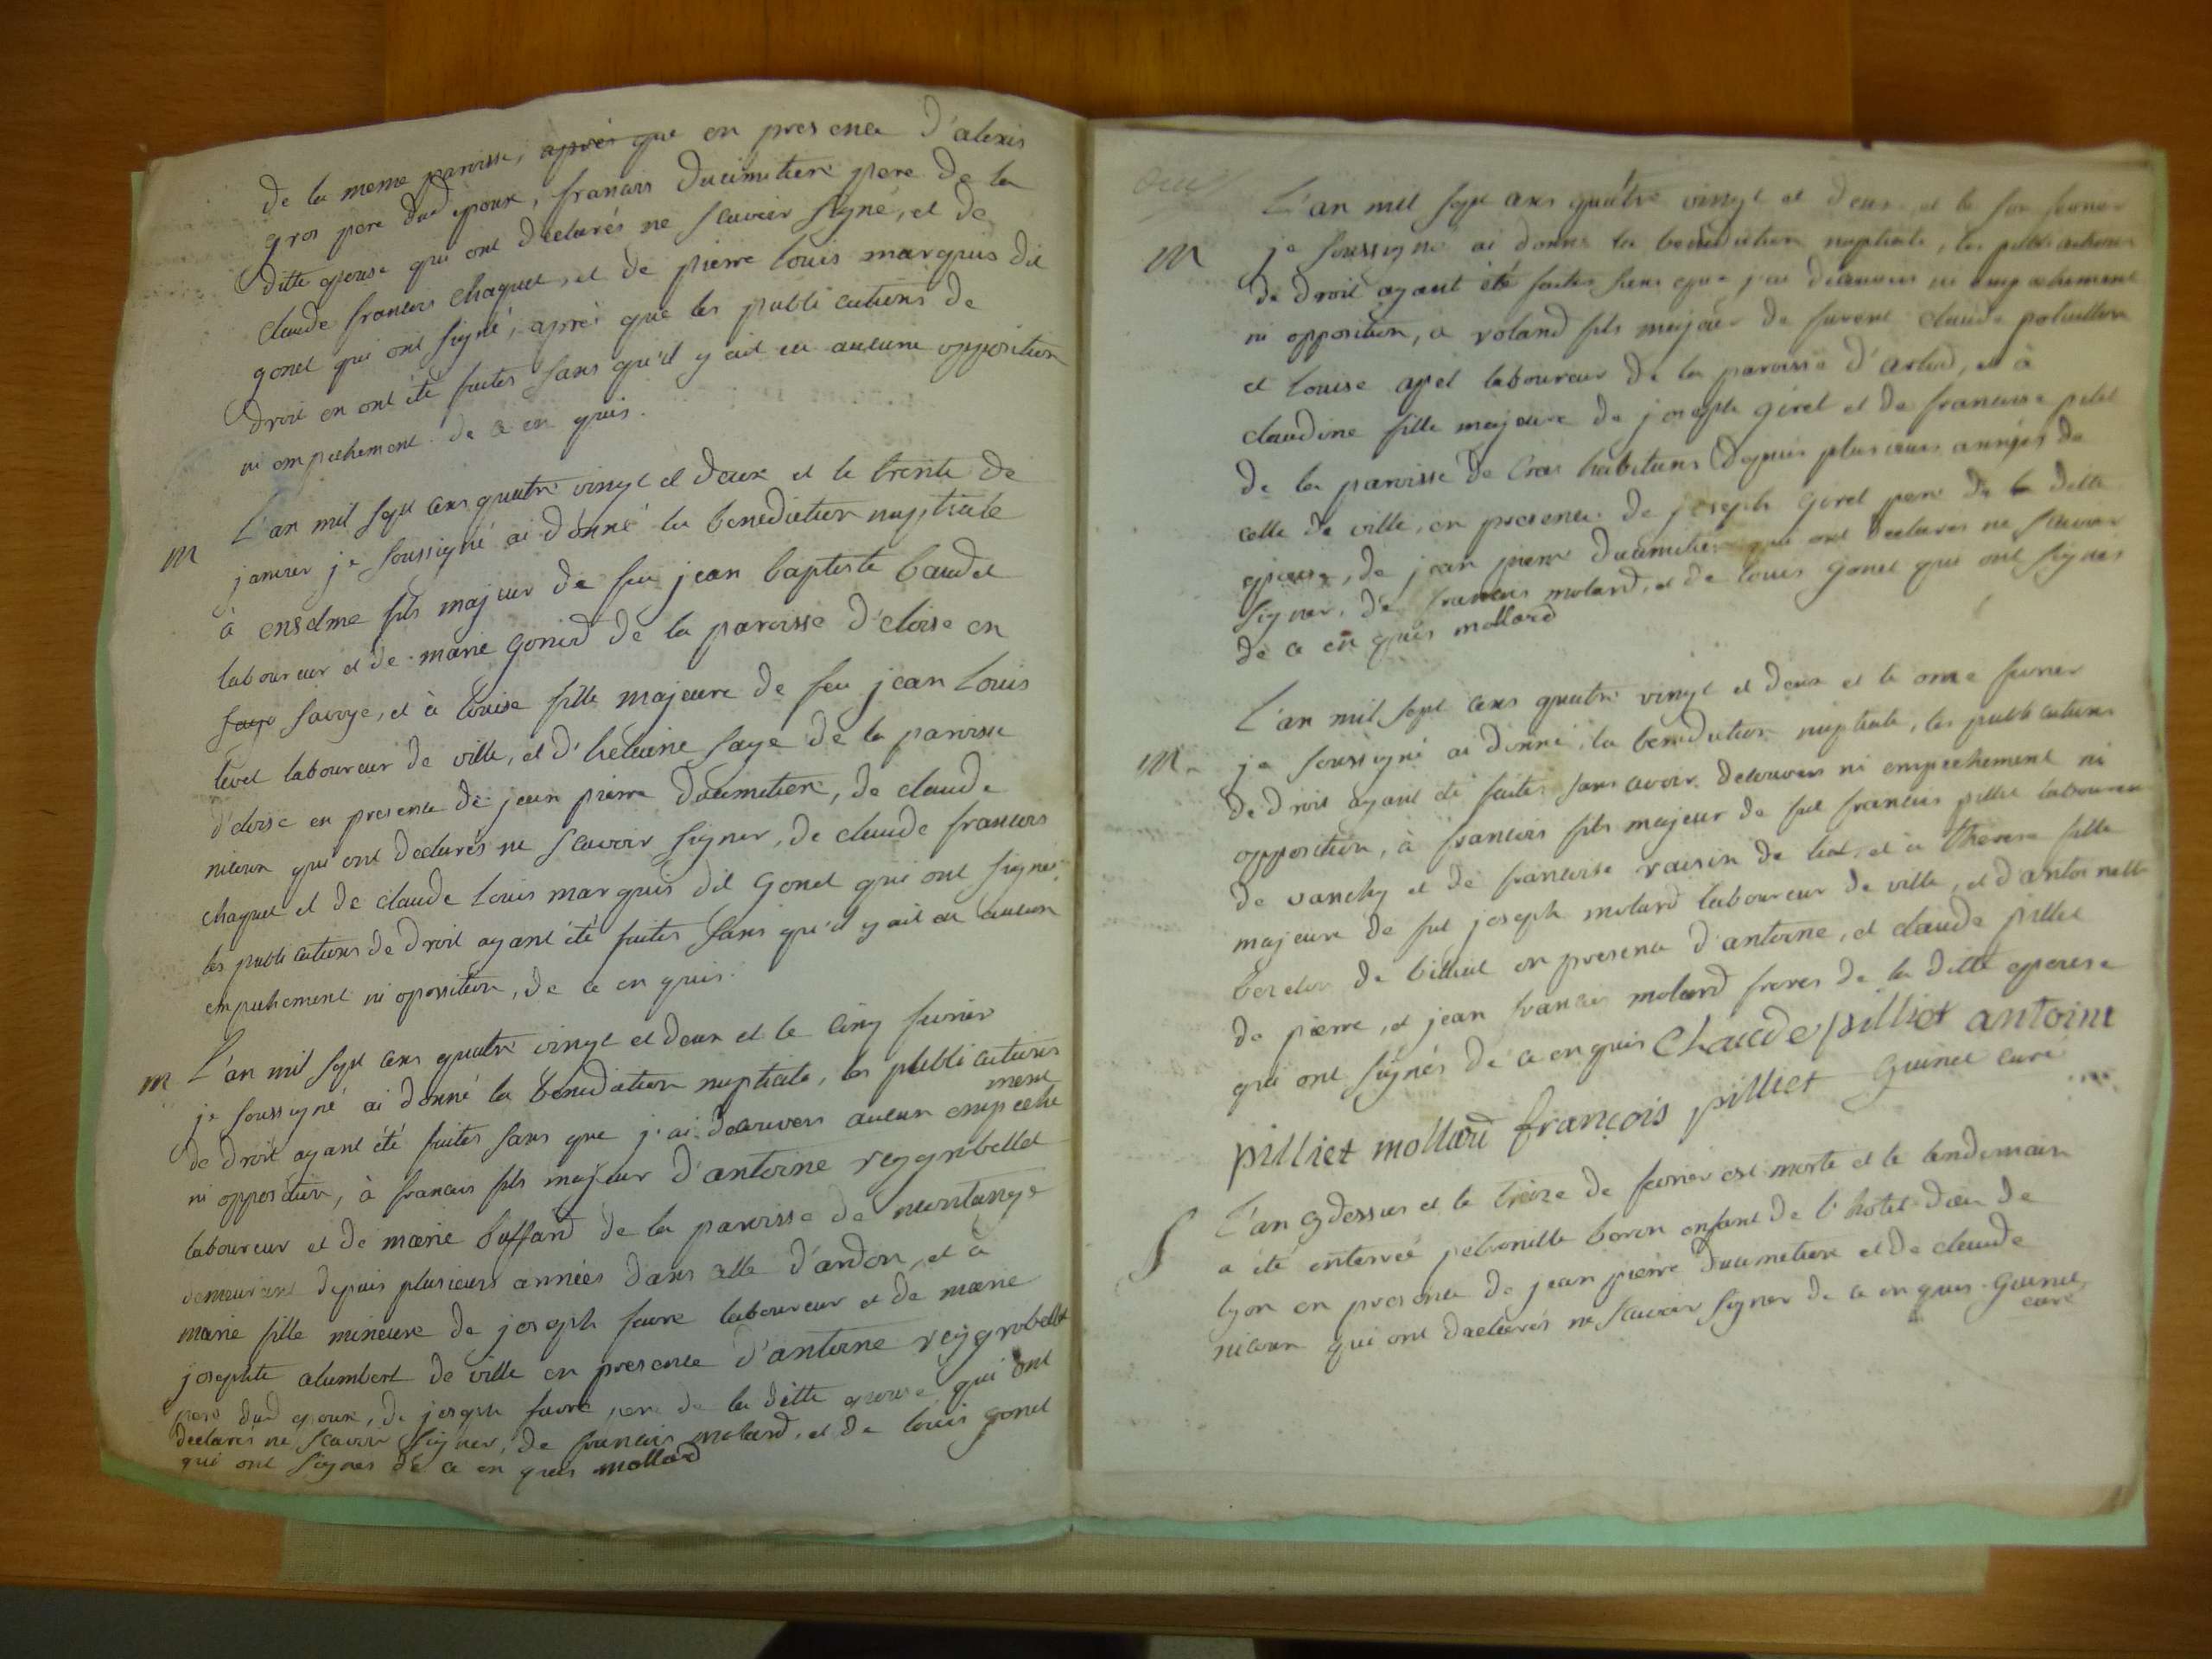 de la meme paroisse, après que en presence d'alexis
gros pere dud epoux, francois ducimetiere pere de la
ditte epouse qui ont declarés ne scavoir signé, et de
claude francois chaquet, et de pierre louis marquis dit
gonet qui ont signé, après que les publications de
droit en ont été faites sans qu'il y ait eu aucune opposition
ni empechement de ce en quis.
M L'an mil sept cens quatre vingt et deux et le trente de
janvier je soussigné ai donné la benediction nuptiale
à enselme fils majeur de feu jean baptiste baudet
laboureur et de marie goniod de la paroisse d'eloise en
savo savoye, et à louise fille majeure de feu jean louis
levet laboureur de ville, et d'heleine saye de la paroisse
d'eloise en presence de jean pierre ducimetiere, de claude
nicoun qui ont declarés ne scavoir signer, de claude francois
chaquet et de claude louis marquis dit gonet qui ont signés
les publications de droit ayant été faites sans qu'il y ait eu aucun
empechement ni oposition, de ce en quis.
M L'an mil sept cens quatre vingt et deux et le cinq fevrier
je soussigné ai donné la benediction nuptiale, les publications
de droit ayant été faites sans que j'ai decouvers aucun empeche
ment
ni opposition, à francois fils majeur d'antoine reygrobellet
laboureur et de marie buffard de la paroisse de montange
demeurant depuis plusieurs années dans celle d'ardon, et à
marie fille mineure de joseph favre laboureur et de marie
josephte alumbert de ville en presence d'antoine reygrobellet
pere dud epoux, de joseph favre pere de la ditte epouse qui ont
declarés ne scavoir signer, de francois molard, et de louis gonet
qui ont signés de ce en quis mollard
L'an mil sept cens quatre vingt et deux et le fevrier
M je soussigné ai donné la benediction nuptiale, les publications
de droit ayant été faites sans que j'ai decouvers ni empechement
ni opposition, a roland fils majeur de claude
et louise apet laboureur de la paroisse d'arlod, et à
claudine fille majeure de joseph girel et de francoise petit
de la paroisse de habitans depuis plusieurs années de
celle de ville, en presence de joseph girel pere de la ditte
epouse, de jean pierre ducimetiere qui ont declarés ne scavoir
signer, de francois molard, et de louis gonet qui ont signés
de ce en quis mollard
L'an mil sept cens quatre vingt et deux et le onze fevrier
M. je soussigné ai donné la benediction nuptiale, les publications
de droit ayant été faites sans avoir decouvers ni empechement ni
opposition, à francois fils majeur de fut francois pilliet laboureur
de vanchy et de francoise raisin de et à therese fille
majeure de fut joseph molard laboureur de ville, et d'antoinette
de billiat en presence d'antoine, et claude pilliet
de pierre, et jean francois molard freres de la ditte epouse
qui ont signés de ce en quis Chaude pilliet antoine
pilliet mollard françois pilliet Guinet curé
S L'an cydessus et le treize de fevrier est morte et le lendemain
a été enterrée petronille boron enfant de l'hotel dieu de
lyon en presence de jean pierre ducimetiere et de claude
nicoun qui ont declarés ne scavoir signer de ce en quis. Guinet
curé